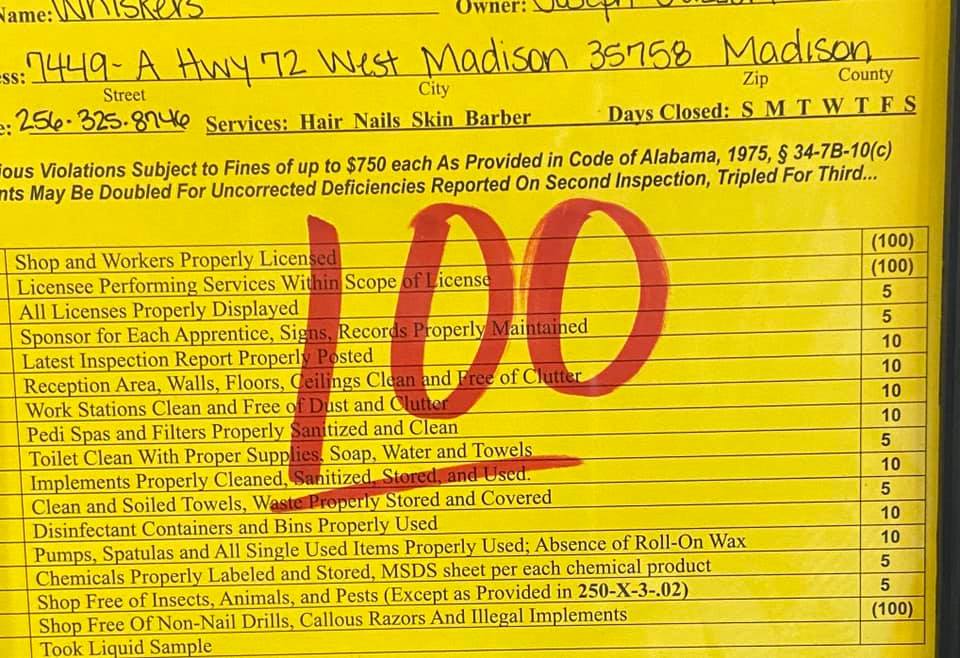 Name: Whiskers Owner: Joseph
ss: 7449-A Hwy 72 West Madison 35758 Madison
Street City Zip County
e: 256.325.8746 Services: Hair Nails Skin Barber Days Closed: S M T W T F S
ious Violations Subject to Fines of up to $750 each As Provided in Code of Alabama, 1975, § 34-7B-10(c)
nts May Be Doubled For Uncorrected Deficiencies Reported On Second Inspection, Tripled For Third...
100
Shop and Workers Properly Licensed (100)
Licensee Performing Services Within Scope of License (100)
All Licenses Properly Displayed 5
Sponsor for Each Apprentice, Signs, Records Properly Maintained 5
Latest Inspection Report Properly Posted 10
Reception Area, Walls, Floors, Ceilings Clean and Free of Clutter 10
Work Stations Clean and Free of Dust and Clutter 10
Pedi Spas and Filters Properly Sanitized and Clean 10
Toilet Clean With Proper Supplies. Soap, Water and Towels 5
Implements Properly Cleaned, Sanitized, Stored, and Used. 10
Clean and Soiled Towels, Waste Properly Stored and Covered 5
Disinfectant Containers and Bins Properly Used 10
Pumps, Spatulas and All Single Used Items Properly Used; Absence of Roll-On Wax 10
Chemicals Properly Labeled and Stored, MSDS sheet per each chemical product 5
Shop Free of Insects, Animals, and Pests (Except as Provided in 250-X-3-.02) 5
Shop Free Of Non-Nail Drills, Callous Razors And Illegal Implements (100)
Took Liquid Sample